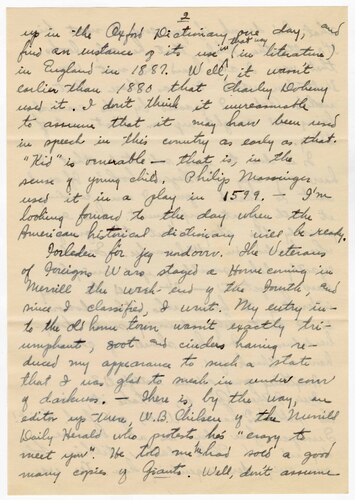 2
up in the Oxford Dictionary one day, and
find an instance of its use in that way (in literature)
in England in 1887. Well, it wasn't
earlier than 1880 that Charley Doheny
used it. I don't think it unreasonable
to assume that it may have been used
in speech in this country as early as that.
"Kid" is venerable — that is, in the
sense of young child. Philip Massinger
used it in a play in 1599. — I'm
looking forward to the day when the
American historical dictionary will be ready.
Forleden för jeg nordover. The Veterans
of Foreign Wars staged a Homecoming in
Merrill the week-end of the Fourth, and
since I classified, I went. My entry in-
to the old home town wasn't exactly tri-
umphant, soot and cinders having re-
duced my appearance to such a state
that I was glad to sneak in under cover
of darkness. — There is, by the way, an
editor up there, W.B. Chilsen of the Merrill
Daily Herald who protests he's "crazy to
meet you". He told me he had sold a good
many copies of Giants. Well, don't assume